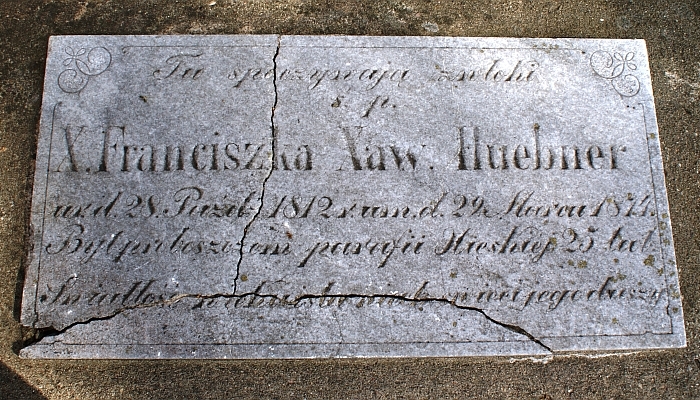 Tu spoczywają zwłoki
ś. p.
X. Franciszka Xaw. Huebner
ur. d. 28. Paźdz. 1812 r. um. d. 29. Marca 1874.
Był proboszczem parafii 25 lat.
Światłość wiekuista niech świeci jego duszy